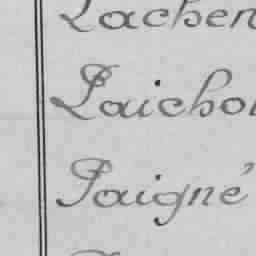 Lachen
Laichoi
Laigné